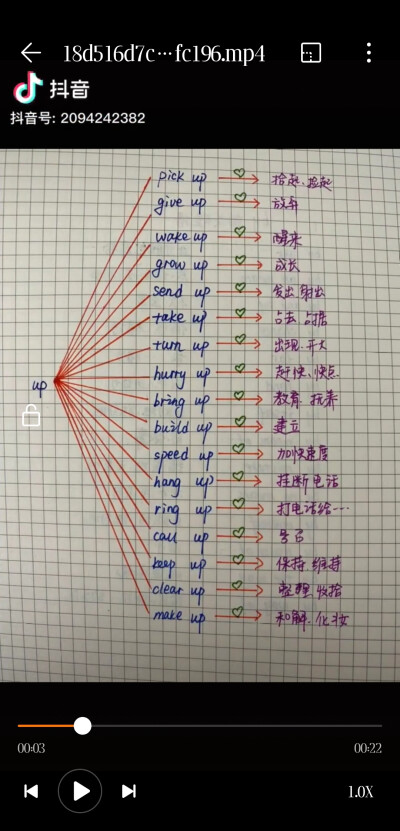 18d516d7c…fc196.mp4
抖音
抖音号: 2094242382
pick up 拾起、捡起
give up 放弃
wake up 醒来
grow up 成长
send up 发出 射出
take up 占去 占据
turn up 出现、开大
hurry up 赶快、快点
up
bring up 教育 抚养
build up 建立
speed up 加快速度
hang up 挂断电话
ring up 打电话给…
call up 号召
keep up 保持 维持
clear up 整理 收拾
make up 和解、化妆
00:03
00:22
1.0X